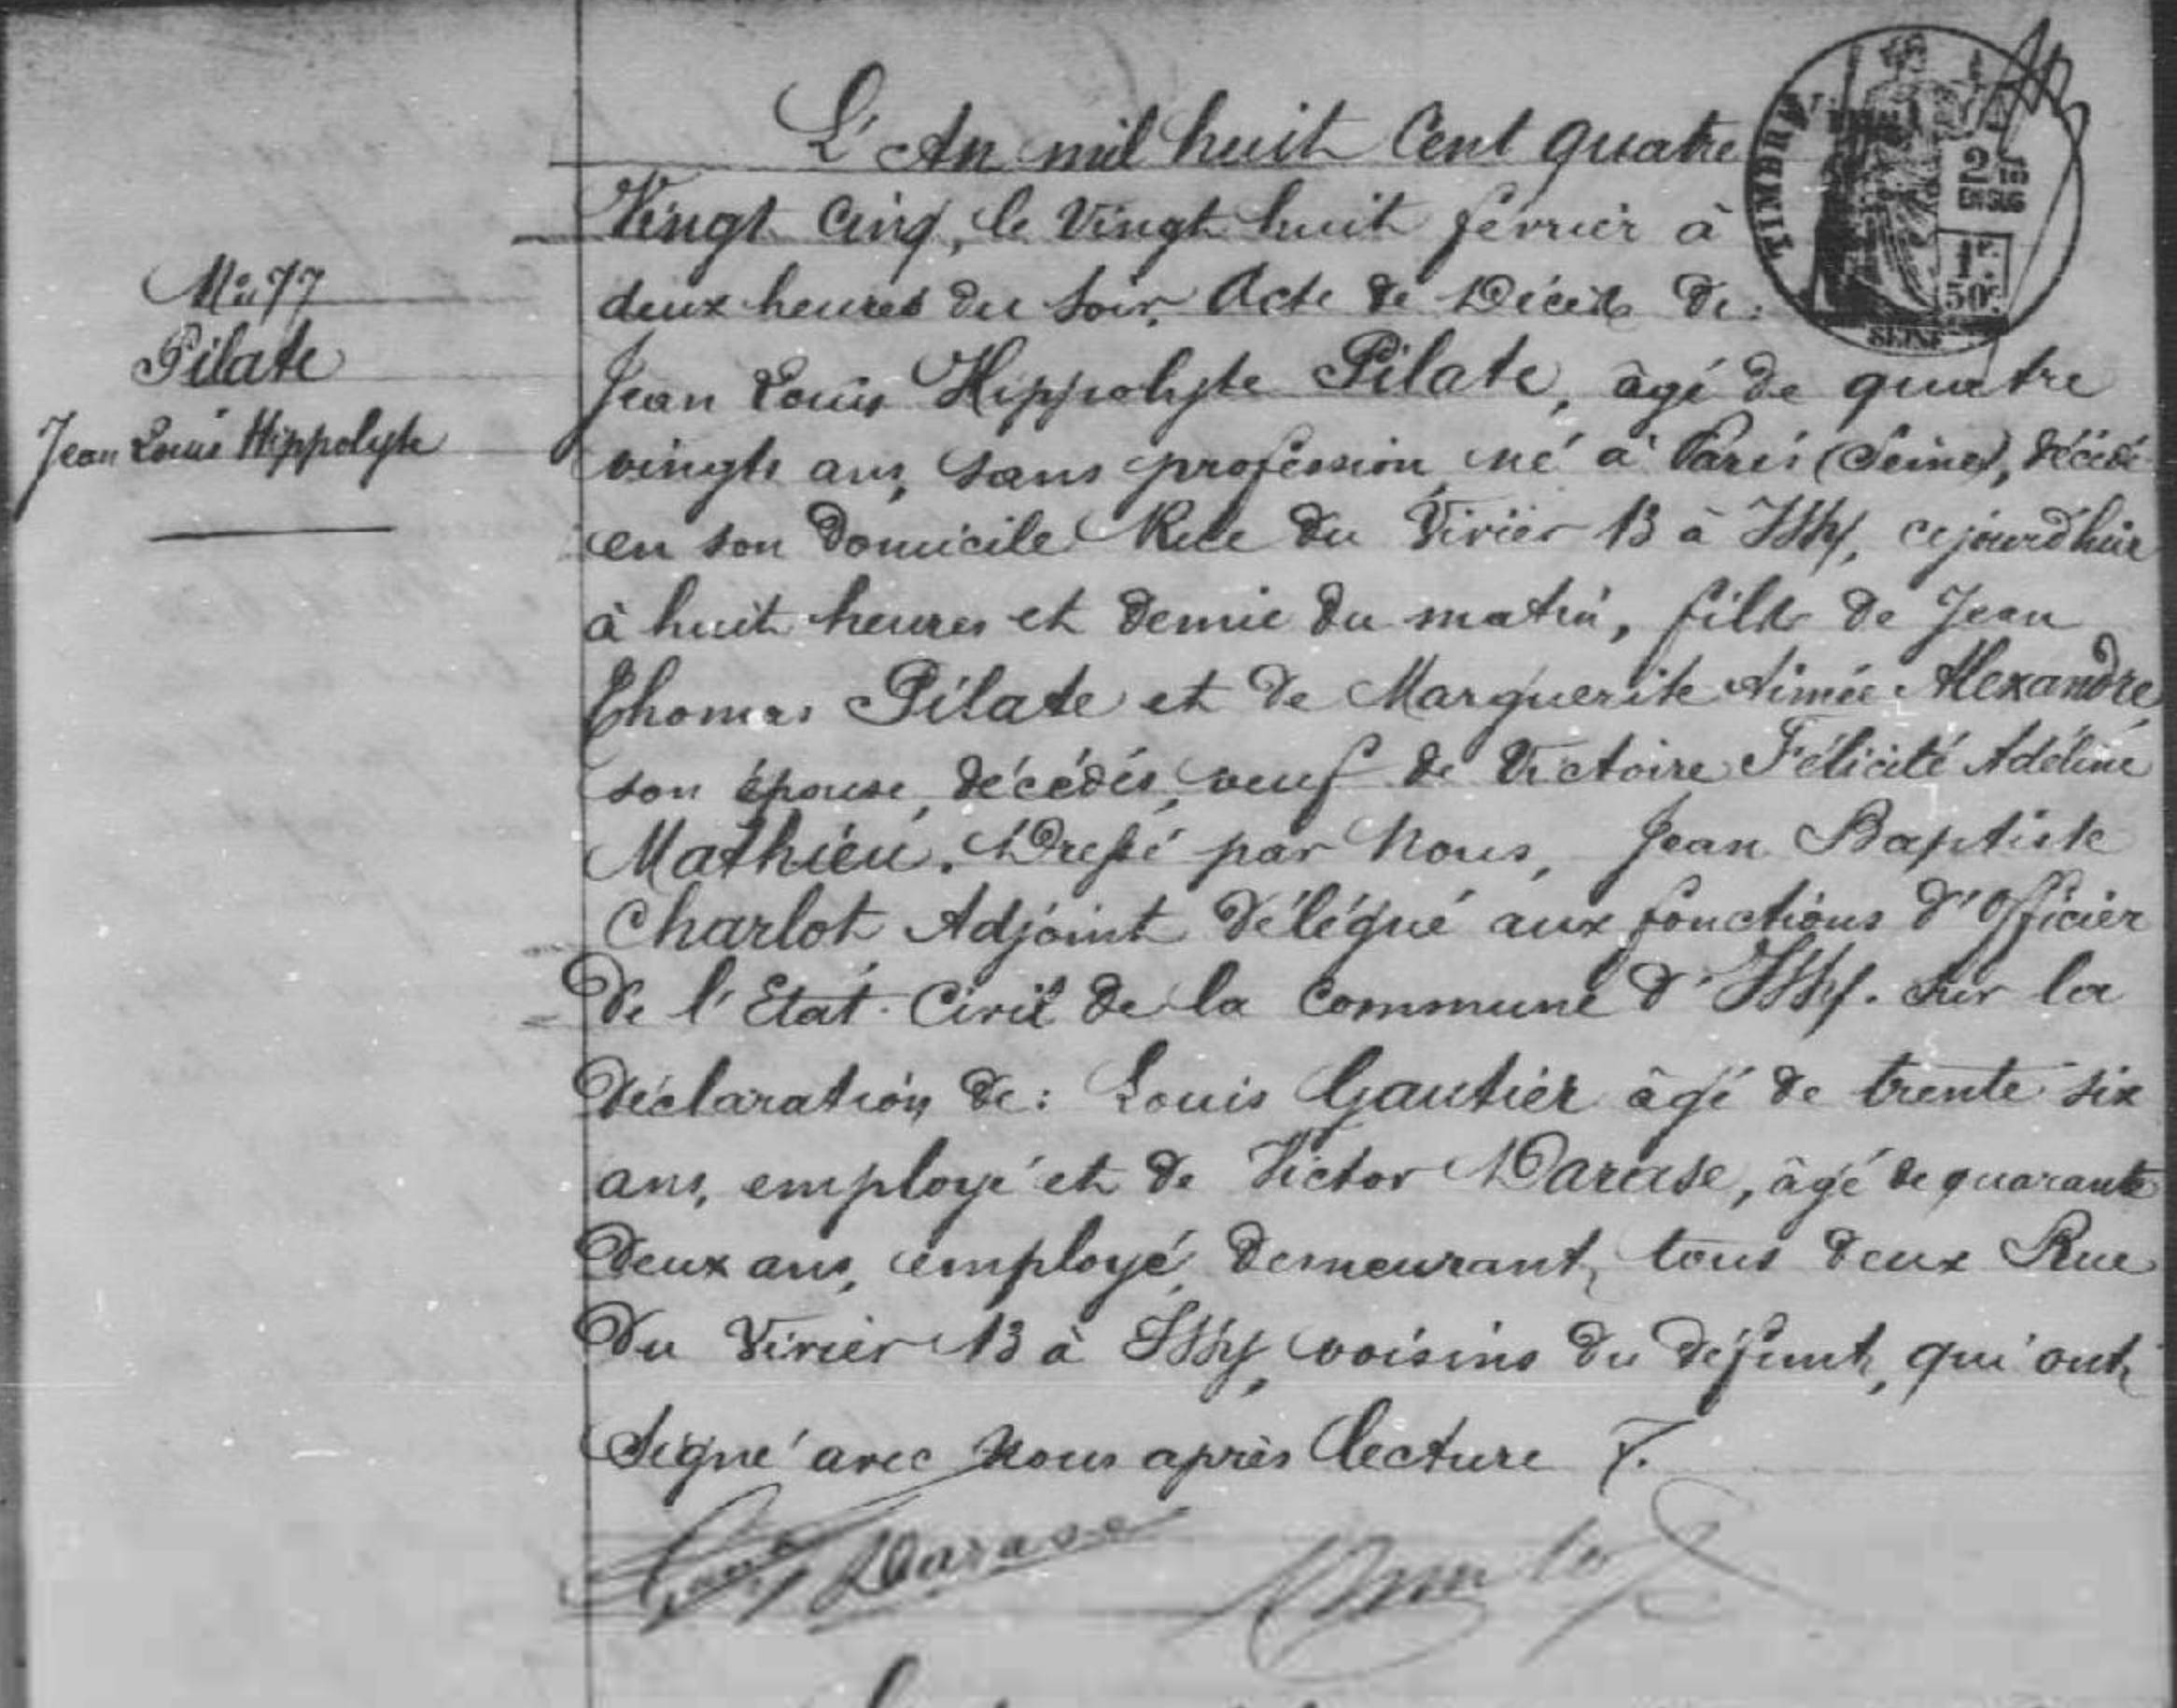 L'An mil huit Cent quatre
Vingt Cinq, le Vingt huit février à
deux heures du soir, Acte de Décès de:
Jean Louis Hippolyte Pilate, âgé de quatre
vingts ans, sans profession, né à Paris (Seine), décédé
en son Domicile Rue du Vivier 13 à Issy, cejourd'hui
à huit heures et demie du matin, fils de Jean
Thomas Pilate et de Marguerite Aimée Alexandre
son épouse, décédés, veuf de Victoire Félicité Adéline
Mathieu. Dressé par Nous, Jean Baptiste
Charlot Adjoint délégué aux fonctions d'Officier
de l'Etat-Civil de la Commune d'Issy. Sur la
déclaration de: Louis Gautier âgé de trente six
ans, employé et de Victor Darase, âgé de quarante
deux ans, employé, demeurant tous deux Rue
du Vivier 13 à Issy, voisins du défunt, qui ont
signé avec Nous après lecture.
Darase
No 77
Pilate
Jean Louis Hippolyte
TIMBRE
2/10
EN SUS
1f.
50c.
SEINE